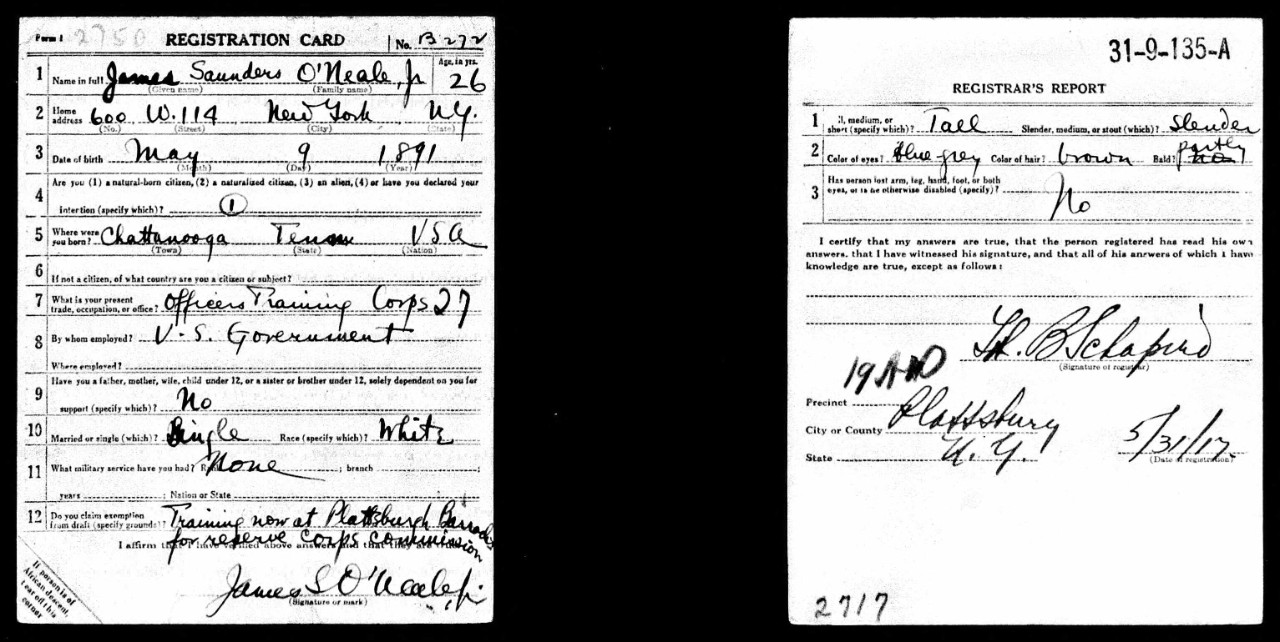 Form 1 2750 REGISTRATION CARD No. B 272
1 Name in full James Saunders O'Neale, Jr Age, in yrs. 26
(Given name) (Family name)
2 Home address 600 W. 114 New York N.Y.
(No.) (Street) (City) (State)
3 Date of birth May 9 1891
(Month) (Day) (Year)
4 Are you (1) a natural-born citizen, (2) a naturalized citizen, (3) an alien, (4) or have you declared your
intention (specify which)? 1
5 Where were you born? Chattanooga Tenn USA
(Town) (State) (Nation)
6 If not a citizen, of what country are you a citizen or subject?
7 What is your present trade, occupation, or office? Officers Training Corps 27
8 By whom employed? U. S. Government
Where employed?
9 Have you a father, mother, wife, child under 12, or a sister or brother under 12, solely dependent on you for
support (specify which)? No
10 Married or single (which)? Single Race (specify which)? White
11 What military service have you had? None ; branch ;
years ; Nation or State
12 Do you claim exemption from draft (specify grounds)? Training now at Plattsburgh Barracks
for reserve corps commission
I affirm that I have verified above answers and that they are true.
James S O'Neale, jr
(Signature or mark)
If person is of
African descent,
tear off this
corner
31-9-135-A
REGISTRAR'S REPORT
1 medium, or short (specify which)? Tall Slender, medium, or stout (which)? Slender
2 Color of eyes? blue grey Color of hair? brown Bald? partly no
3 Has person lost arm, leg, hand, foot, or both
eyes, or is he otherwise disabled (specify)?
No
I certify that my answers are true, that the person registered has read his own
answers, that I have witnessed his signature, and that all of his answers of which I have
knowledge are true, except as follows:
B Schapiro
(Signature of registrar)
Precinct 19 AD
City or County Plattsburg
State N. Y. 5/31/17.
(Date of registration)
2717